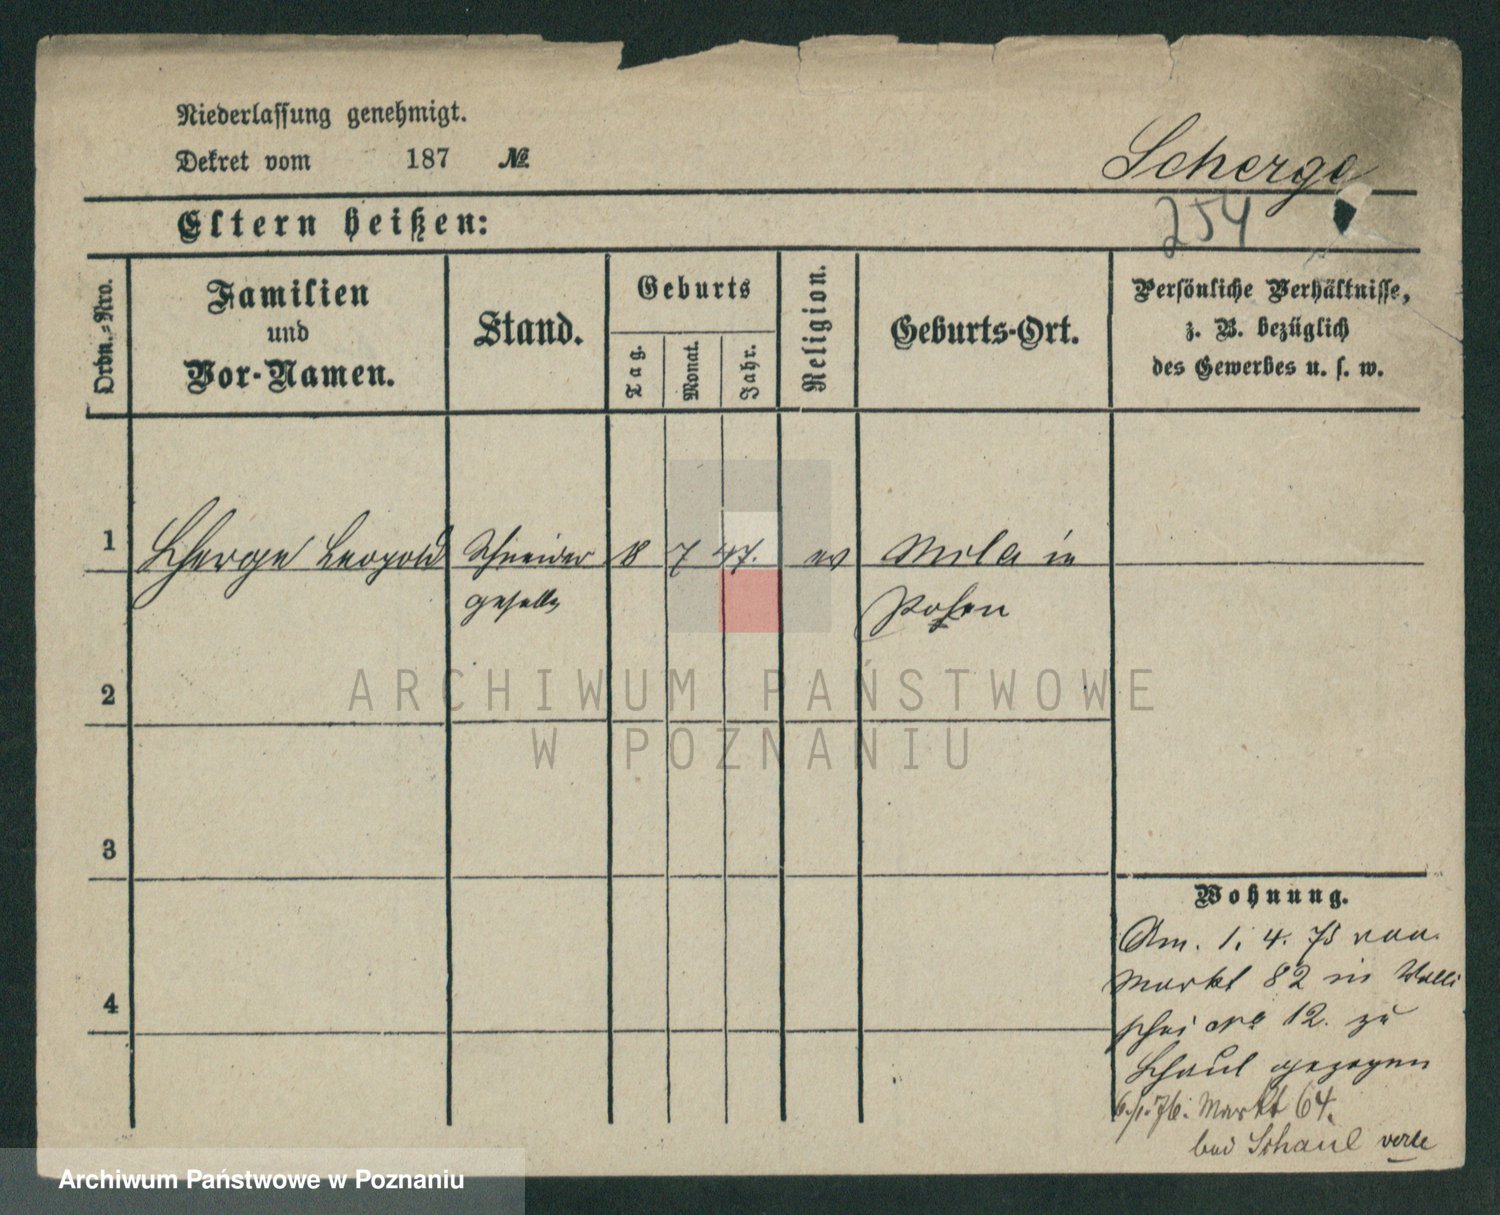 Niederlassung genehmigt.
Dekret vom 187 №
Scherge
254
Eltern heißen:
Ordn.-Nro.
Familien
und
Vor-Namen.
Stand.
Geburts
Tag.
Monat.
Jahr.
Religion.
Geburts-Ort.
Persönliche Verhältnisse,
z. B. bezüglich
des Gewerbes u. s. w.
1 Scherge Leopold Schneider 8 7 47. ev in
geselle Posen
2
ARCHIWUM PAŃSTWOWE
W POZNANIU
3
4
Wohnung.
Am. 1. 4. 75 von
Markt 82 in Walli
schei No 12. zu
Schaul gezogen
6./1.76. Markt 64.
bei Schaul
Archiwum Państwowe w Poznaniu